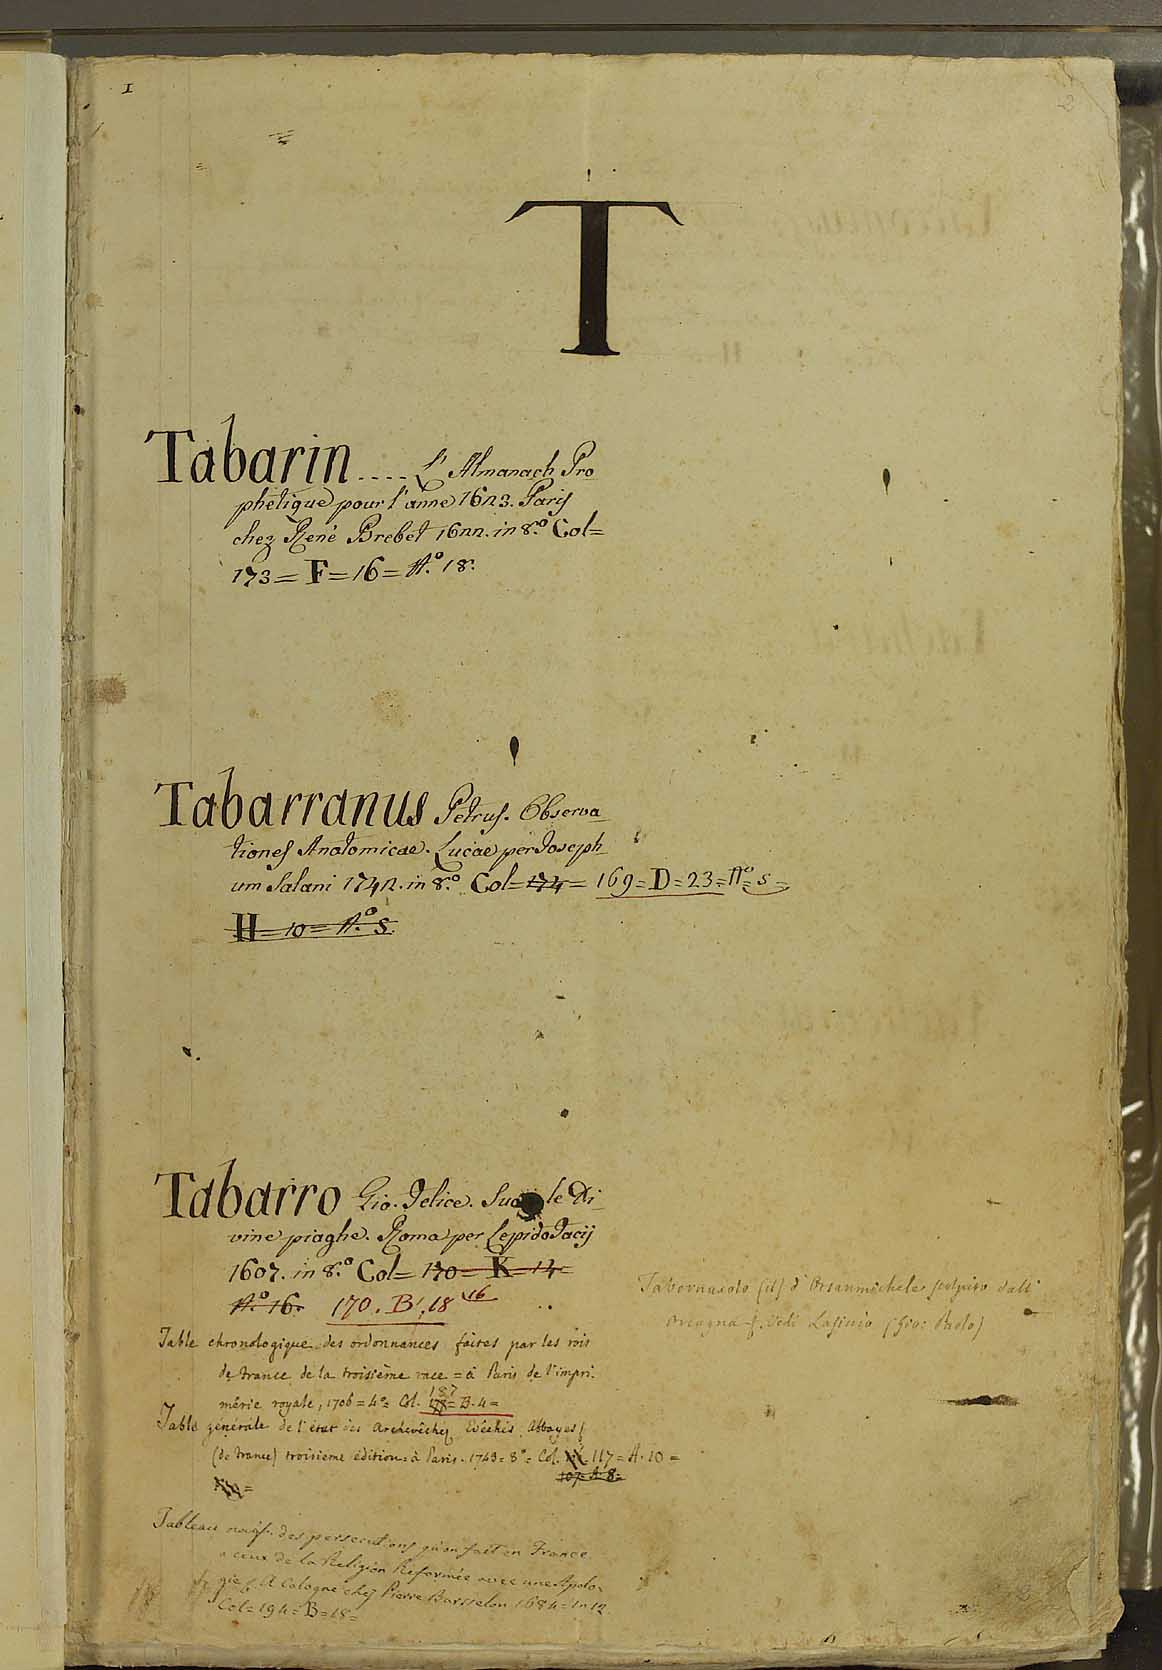 1
2
T
Tabarin .... L'Almanach Pro
phetique pour l'anne 1623. Paris
chez René Brebet 1622. in 8.º Col=
173 = F = 16 = N.º 18.
Tabarranus Petrus. Observa
tiones Anatomicae. Lucae per Joseph
um Salani 1742. in 8.º Col= 174 = 169 = D = 23 = Nº= 5 =
H = 10 = N.º 5.
Tabarro Gio. Felice. le Di
vine piaghe. Roma per Lepido Facij
1607. in 8.º Col= 170 = K = 14
N.º 16. 170. B. 18 16
Tabernacolo (il) d'Orsanmichele scolpito dall'
Orcagna Vedi Lasinio (Gio: Paolo)
Table chronologique des ordonnances faites par les rois
de France de la troisième race = à Paris de l'impri.
mérie royale, 1706 = 4º= Col. 178 187 = B. 4 =
Table générale de l'état des Archevêchés Evêchés, Abbayes
(de France) troisieme édition. à Paris. 1743 = 8º = Col. 117 = A. 10 =
107= A. 8=
Tableau naif. des persecutions qu'on fait en France
a ceux de la Religion Reformée avec une Apolo=
gie A Cologne chez Pierre 1684 = in 12.
Col = 194 = B = 18 =